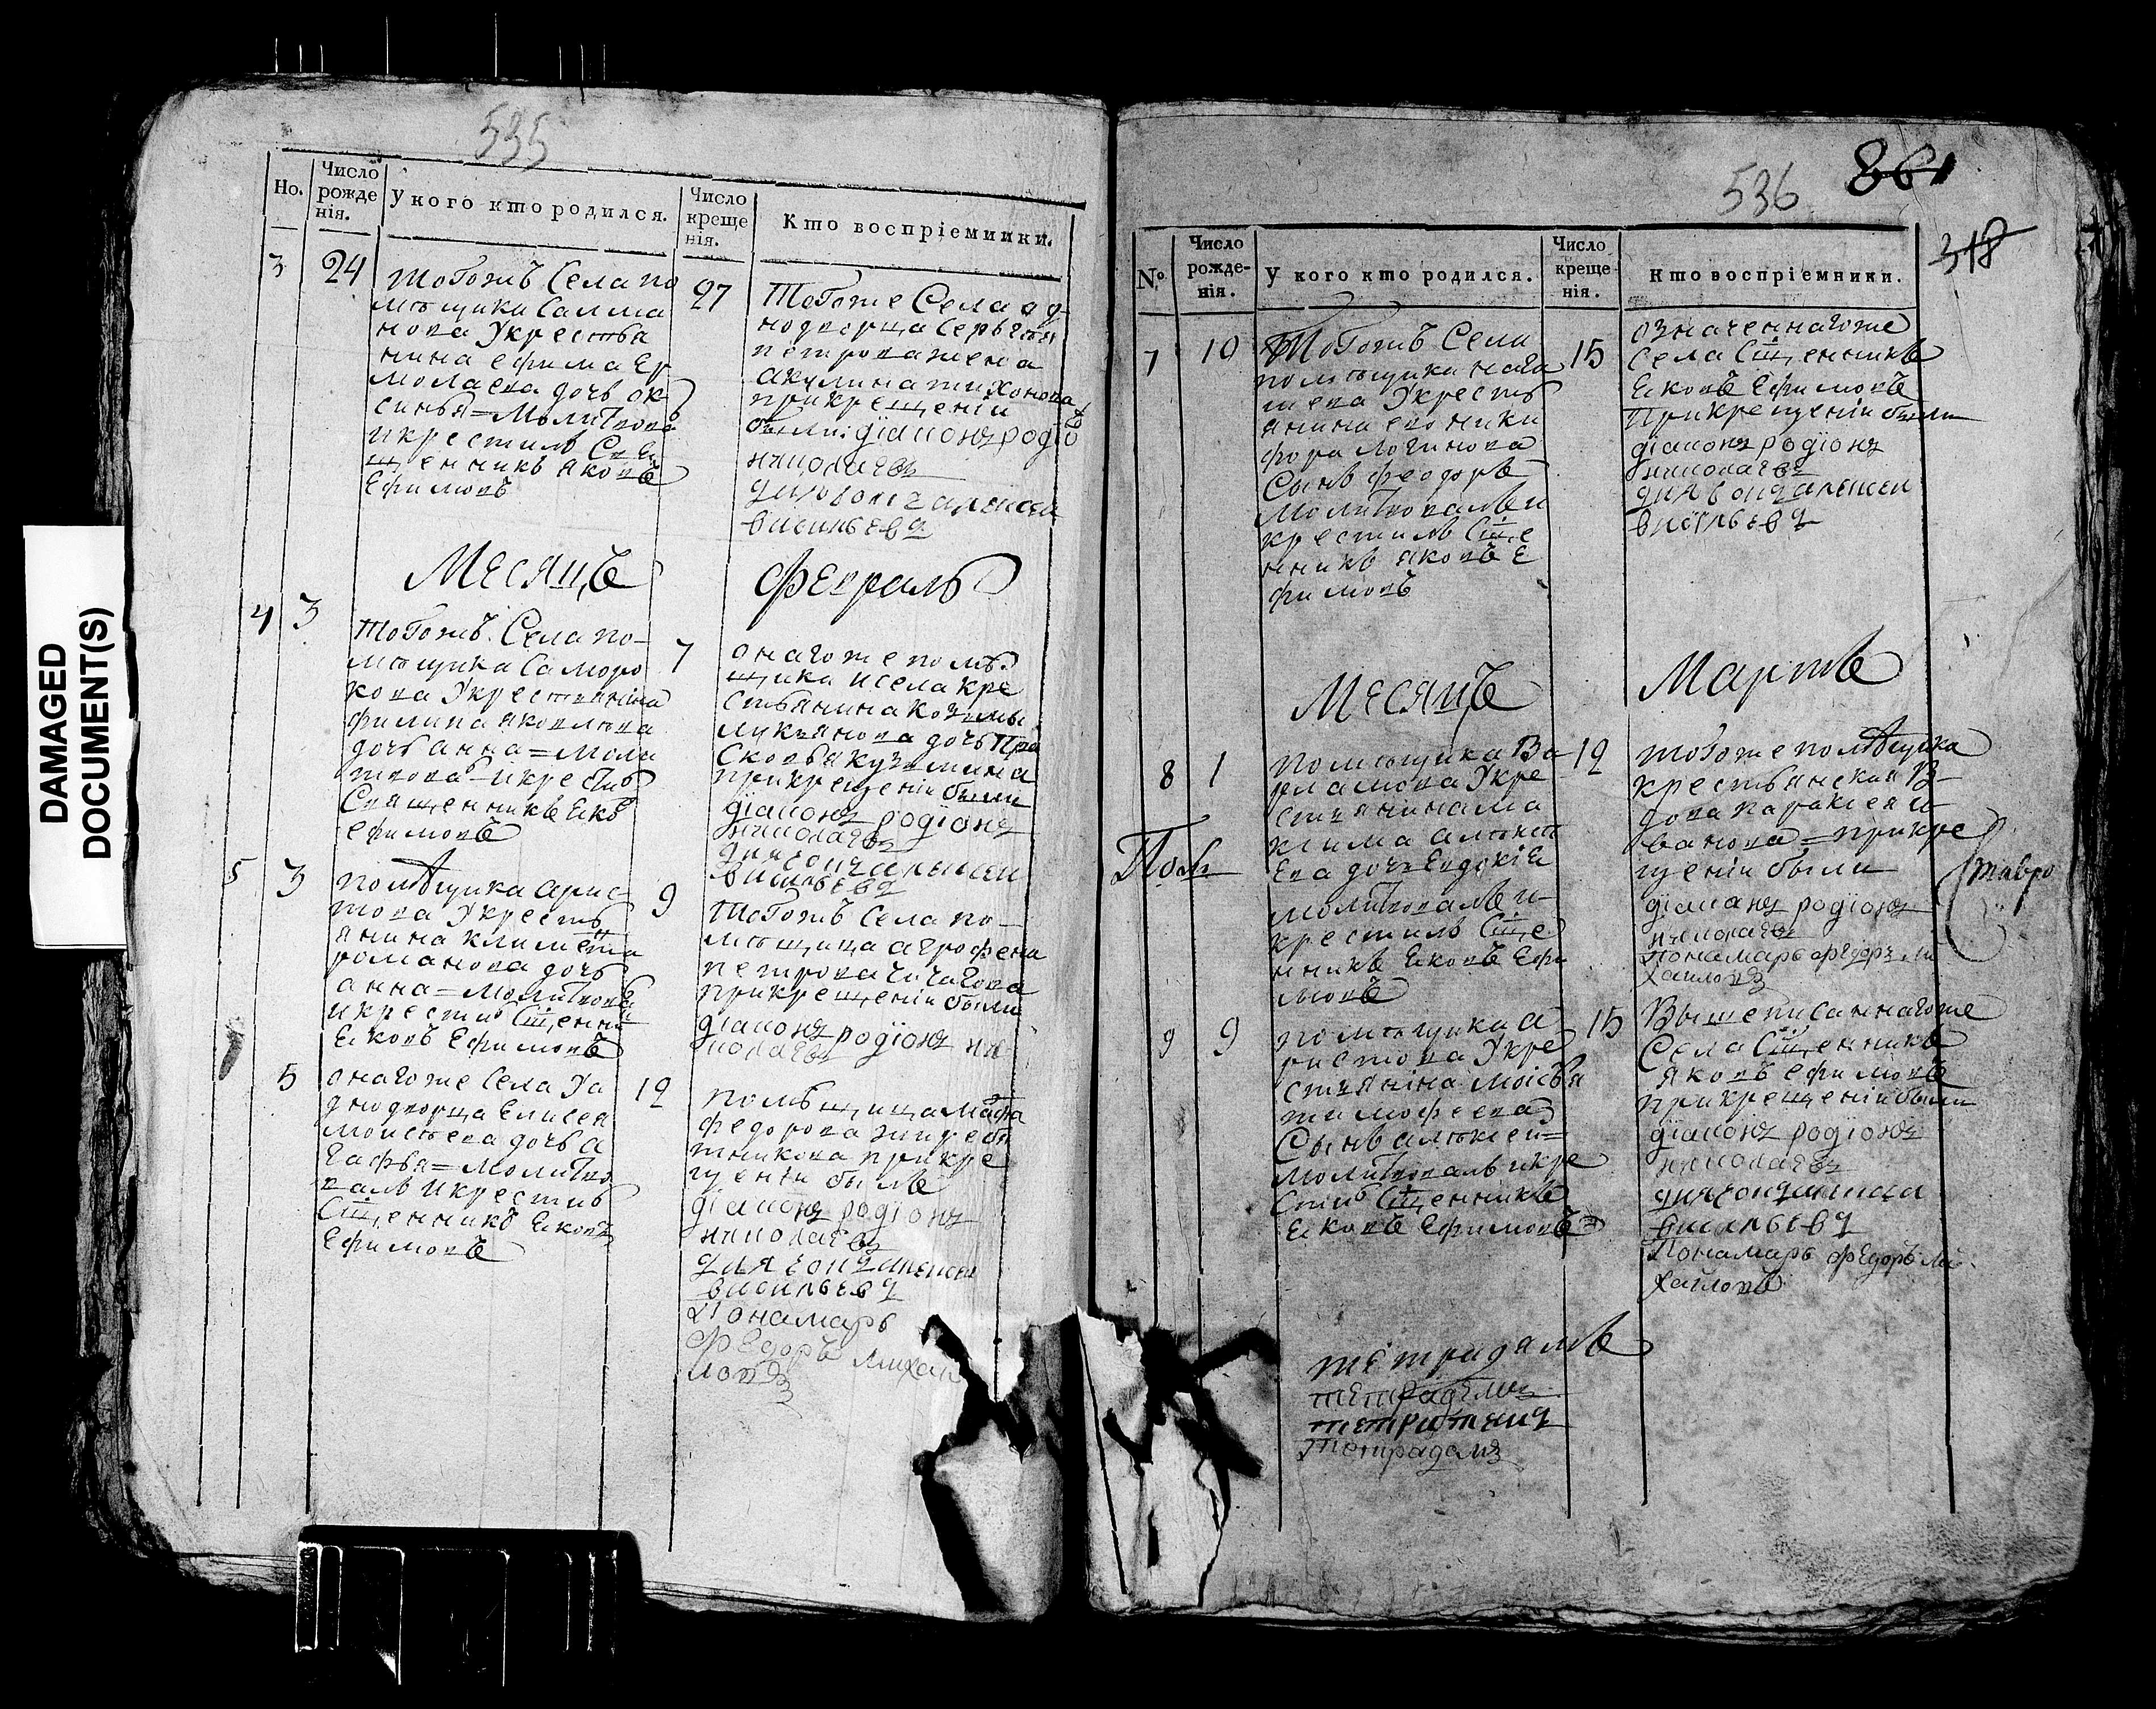 DAMAGED
DOCUMENT(S)
535
Но.
Число
рожде
нія.
У кого кто родился.
Число
креще
нія.
Кто воспріемники.
3 24
тогожъ Села по
мѣщика Салма
нова Укрестья
нина ефима Ер
молаева дочь ок
синья = Молитвова
икрестилъ
щенникъ яковъ
Ефимовъ
27
Тогоже Села од
нодворца Сергѣя
петрова жена
акулина тихонова
прикрещеніи
были: діаконъ родіо
николаевъ
дьячокъ алексеи
васильевъ
Месяцъ
Февраль
4 3
тогожъ Села по-
мѣщика Саморо
кова Укрестянина
филипа яковлева
дочь анна = моли
твова икрестилъ
Священникъ Яко
ефимовъ
7
онагоже помѣ
щика исела кре
стьянина козмы
лукьянова дочь Пра
сковья кузмина
прикрещеніи были
діаконъ родіонъ
николаевъ
дьячокъ алексеи
васильевъ
5 3
помѣщика арис
това Укресть
янина климента
романова дочь
анна = молитвова
икрестилъ Сщенни
Яковъ Ефимовъ
9
тогожъ Села по-
мѣщица аграфена
петрова чичагова
прикрещеніи были
діаконъ родіонъ ни
колаевъ
5
онагоже Села Уа
днодворца Елисея
моисеева дочь а
гафья = молитво
валъ икрестилъ
Сщенникъ Яковъ
Ефимовъ
12
помѣщица Марфа
федорова
прикре
щеніи былъ
діаконъ родіонъ
николаевъ
дьячокъ алексеи
васильевъ
Понамарь
Федоръ Михаи
ловъ
536
861
318
№.
Число
рожде-
нія.
У кого кто родился.
Число
креще-
нія.
Кто воспріемники.
7 10
Тогожъ Села
помѣщика нага
ткина Укресть
янина еки
фора логинова
Сынъ феодоръ
молитвовалъ и
крестилъ Сще
нникъ яковъ Е
фимовъ
15
означеннагоже
Села Сщенникъ
Яковъ Ефимовъ
прикрещеніи были
діаконъ родіонъ
николаевъ
дьячокъ алексеи
васильевъ
Месяцъ
Мартъ
8 1
помѣщика Ва
рламова Укре
стьянина ма
ксима алексѣ
Ева дочь Евдокія
молитвовалъ и
крестилъ Сще
нникъ Яковъ Ефи
мовъ
12
тогоже помѣщика
крестьянская В-
дова параксея и
ванова = прикре
щеніи были
діаконъ родіонъ
николаевъ
Понамарь Федоръ Ми
хаиловъ
9 9
помѣщика а
ристова Укре
стьянина моисея
тимофеева
Сынъ алексеи =
молитвовалъ икре
стилъ Сщенникъ
Яковъ Ефимовъ
15
Вышеписаннагоже
Села Сщенникъ
яковъ ефимовъ
прикрещеніи были
діаконъ родіонъ
николаевъ
дьячокъ алексеи
васильевъ
Понамарь Федоръ Ми
хаиловъ
тетрадамъ
тетрадемъ
тетрадамъ